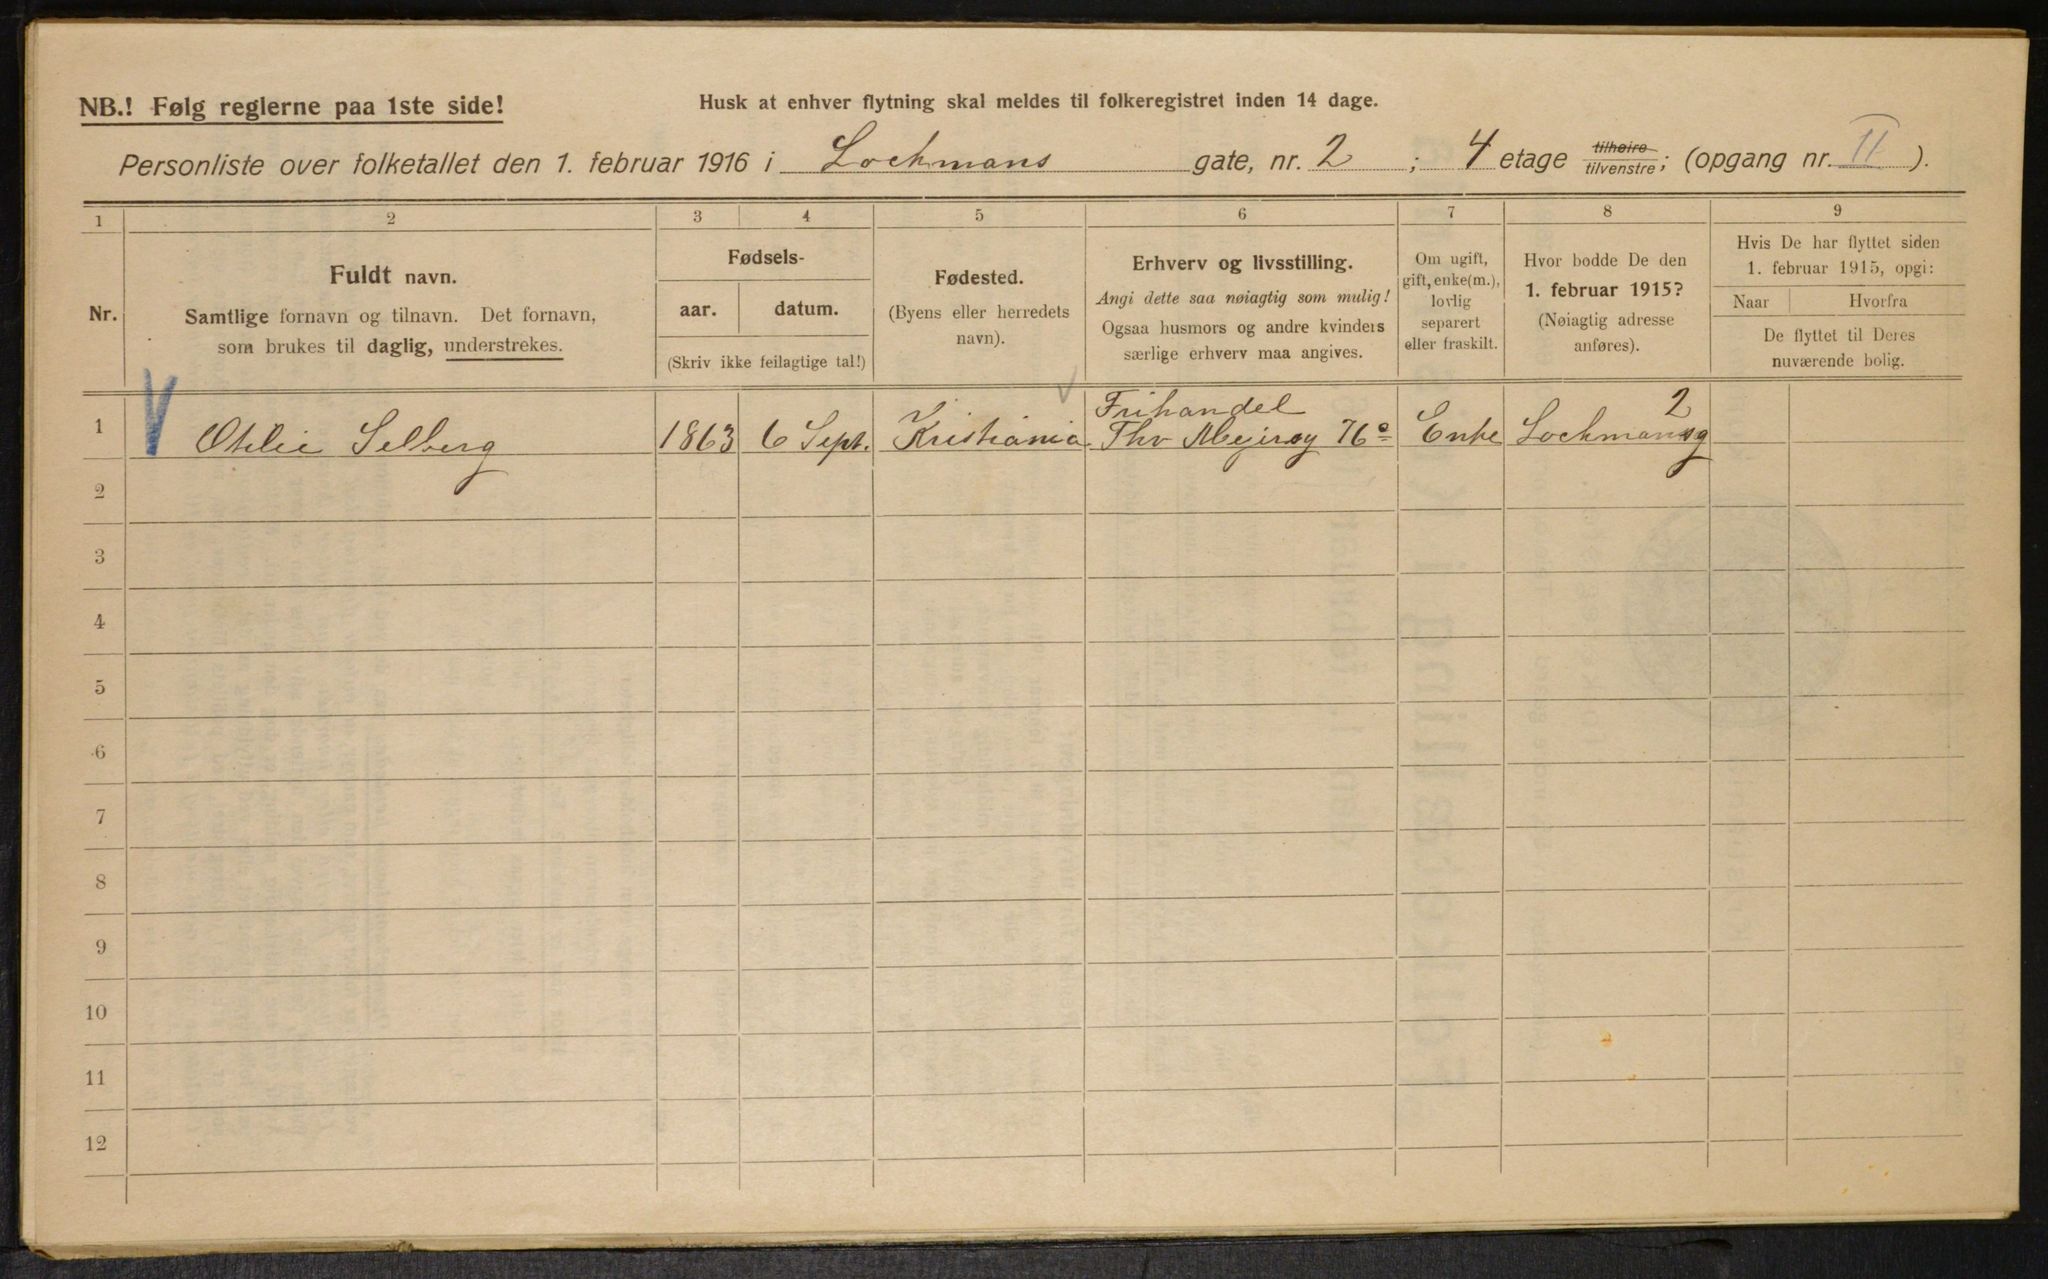 NB.! Følg reglerne paa 1ste side!
Husk at enhver flytning skal meldes til folkeregistret inden 14 dage.
Personliste over folketallet den 1. februar 1916 i Lochmans gate, nr. 2 ; 4 etage tilhøire tilvenstre; (opgang nr. II ).
1 2 3 4 5 6 7 8 9
Nr.
Fuldt navn.
Samtlige fornavn og tilnavn. Det fornavn,
som brukes til daglig, understrekes.
Fødsels-
aar. datum.
(Skriv ikke feilagtige tal!)
Fødested.
(Byens eller herredets
navn).
Erhverv og livsstilling.
Angi dette saa nøiagtig som mulig!
Ogsaa husmors og andre kvinders
særlige erhverv maa angives.
Om ugift,
gift, enke(m.),
lovlig
separert
eller fraskilt.
Hvor bodde De den
1. februar 1915?
(Nøiagtig adresse
anføres).
Hvis De har flyttet siden
1. februar 1915, opgi:
Naar Hvorfra
De flyttet til Deres
nuværende bolig.
Frihandel 2
1 Otilie Selberg 1863 6 Sept. Kristiania Thv Mejersg 76c Enke Lochmansg
2
3
4
5
6
7
8
9
10
11
12